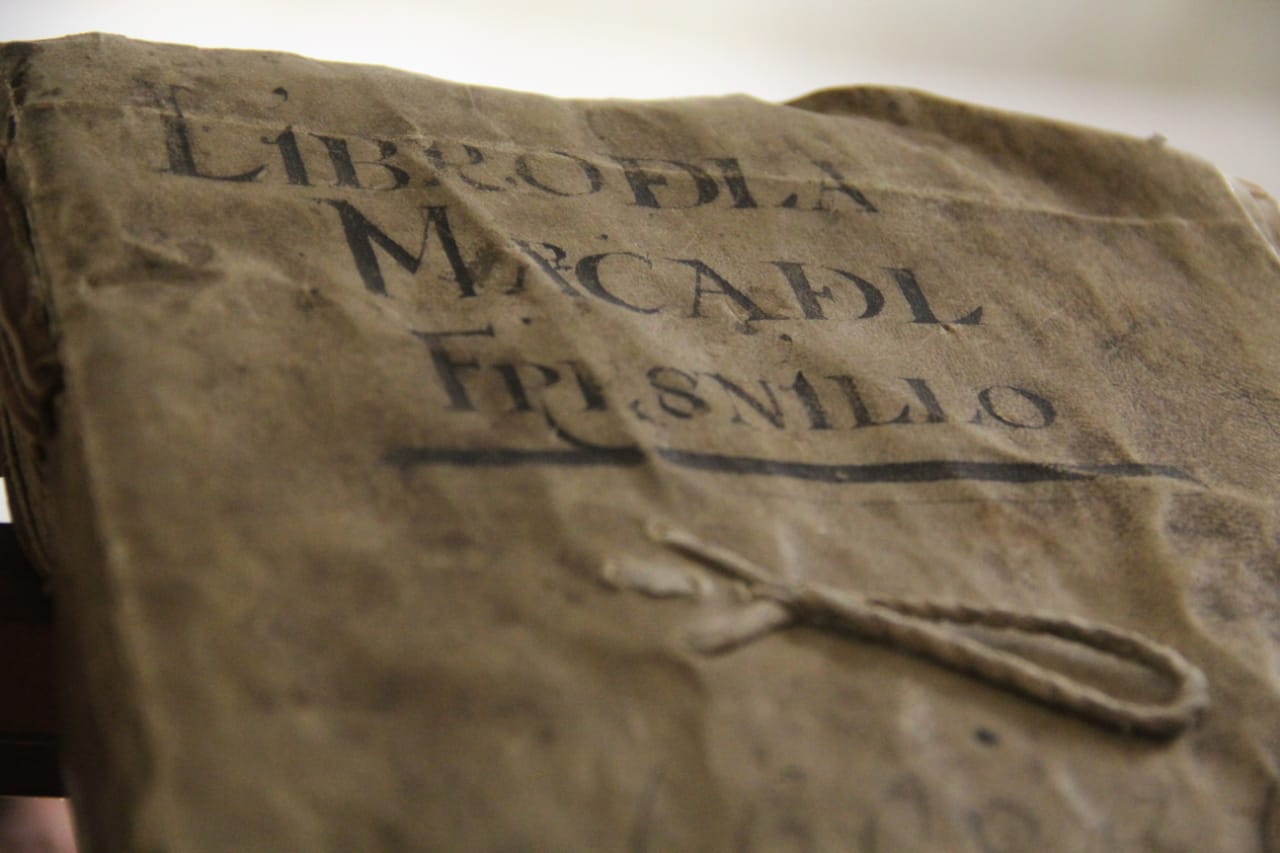 LIBRO DE LA
MARCA DEL
FRESNILLO